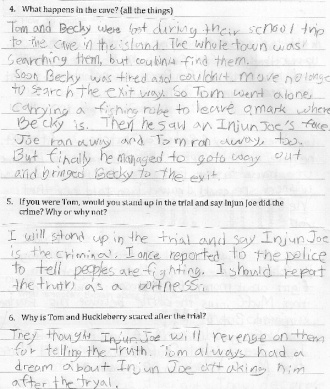 4. What happens in the cave? (all the things)
Tom and Becky were lost during their school trip
to the cave in the island. The whole town was
searching them, but couldn't find them.
Soon Becky was tired and couldn't move no longe
to search the exit way. So Tom went alone,
carrying a fishing robe to leave a mark where
Becky is. Then he saw an Injun Joe's face.
Joe ran away and Tom ran away, too.
But finally he managed to goto way out
and bringed Becky to the exit.
5. If you were Tom, would you stand up in the trial and say Injun Joe did the
crime? Why or why not?
I will stand up in the trial and say Injun Joe
is the criminal. I once reported to the police
to tell peoples are fighting. I should report
the truth as a witness.
6. Why is Tom and Huckleberry scared after the trial?
They thought Injun Joe will revenge on them
for telling the truth. Tom always had a
dream about Injun Joe attaking him
after the tryal.